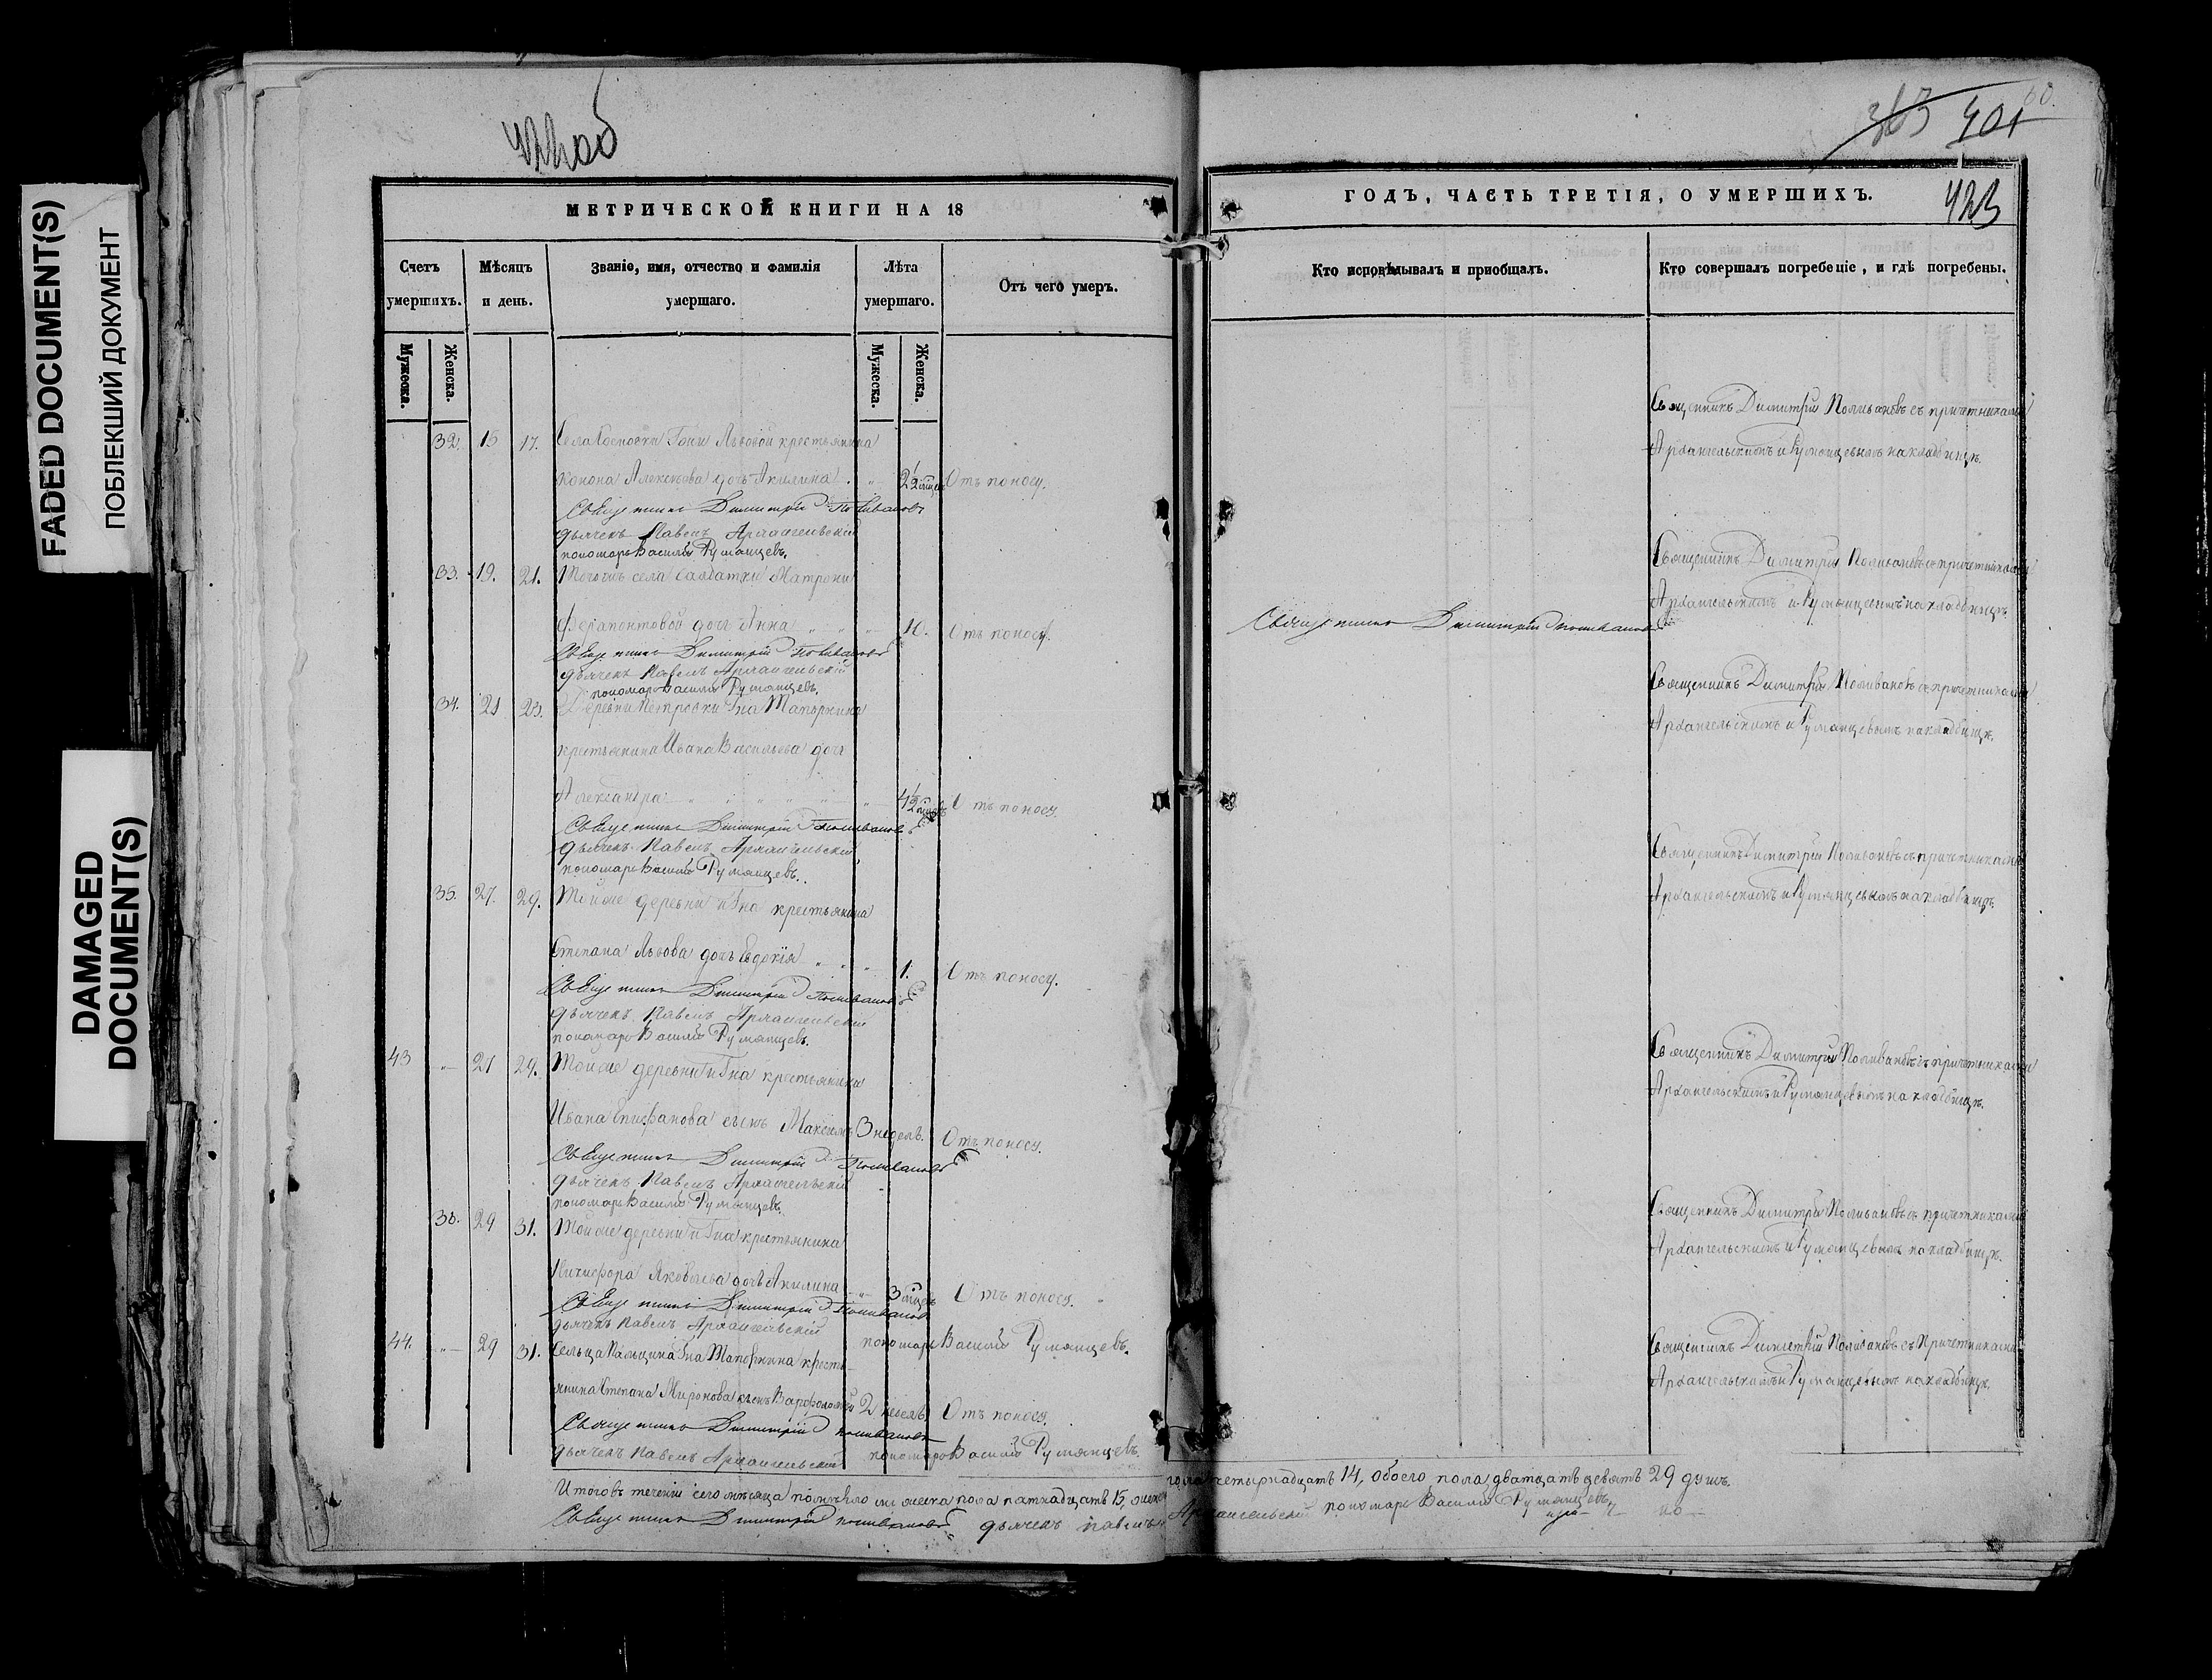 FADED DOCUMENT(S)
ПОБЛЕКШИЙ ДОКУМЕНТ
DAMAGED
DOCUMENT(S)
МЕТРИЧЕСКОЙ КНИГИ НА 18
Счетъ умершихъ.
Мѣсяцъ и день.
Званіе, имя, отчество и фамилія умершаго.
Лѣта умершаго.
Отъ чего умеръ.
Мужеска.
Женска.
Мужеска.
Женска.
32. 15 17. Села Гони Львовой крестьянина
Конона Алексѣева дочь Акилина 2½ мцев Отъ поносу.
Священникъ Димитрій Поливановъ
дьячекъ Павелъ Архангельскій
пономарь Василій Румянцевъ.
33. 19. 21. Тогожъ села Салдатки Матроны
Ферапонтовой дочь Анна 10. Отъ поносу.
Священникъ Димитрій Поливановъ
дьячекъ Павелъ Архангельскій
пономарь Василій Румянцевъ.
34. 21 23. Деревни Петровки Гна Тапоркина
крестьянина Ивана Васильева дочь
Александра 4½ мцовъ Отъ поносу.
Священникъ Димитрій Поливановъ
дьячекъ Павелъ Архангельскій
пономарь Василій Румянцевъ.
35. 27. 29. Тойже деревни и Гна крестьянина
Степана Львова дочь Евдокія 1. Отъ поносу.
Священникъ Димитрій Поливановъ
дьячекъ Павелъ Архангельскій
пономарь Василій Румянцевъ.
43 27 29. Тойже деревни и Гна крестьянина
Ивана Епифанова сынъ Максимъ 3 недел. Отъ поносу.
Священникъ Димитрій Поливановъ
дьячекъ Павелъ Архангельскій
пономарь Василій Румянцевъ.
36. 29 31. Тойже деревни и Гна крестьянина
Никифора Яковлева дочь Акилина 3 мцев Отъ поносу.
Священникъ Димитрій Поливановъ
дьячекъ Павелъ Архангельскій пономарь Василій Румянцевъ.
44. 29 31. Сельца Пальцина Гна Тапоркина кресть
янина Степана Миронова сынъ Варфоломей 2 недель Отъ поносу.
Священникъ Димитрій Поливановъ
дьячекъ Павелъ Архангельскій пономарь Василій Румянцевъ.
Итого въ теченіи сего мѣсяца померло мужеска пола пятнадцать 15, женска
Священникъ Димитрій Поливановъ дьячекъ Павелъ
363 401
60.
423
ГОДЪ, ЧАСТЬ ТРЕТІЯ, О УМЕРШИХЪ.
Кто исповѣдывалъ и пріобщалъ.
Кто совершалъ погребеніе, и гдѣ погребены.
Священникъ Димитрій Поливановъ съ причетниками
Архангельскимъ и Румянцевымъ на кладбищѣ.
Священникъ Димитрій Поливановъ съ причетниками
Архангельскимъ и Румянцевымъ на кладбищѣ.
Священникъ Димитрій Поливановъ
Священникъ Димитрій Поливановъ съ причетниками
Архангельскимъ и Румянцевымъ на кладбищѣ.
Священникъ Димитрій Поливановъ съ причетниками
Архангельскимъ и Румянцевымъ на кладбищѣ.
Священникъ Димитрій Поливановъ съ причетниками
Архангельскимъ и Румянцевымъ на кладбищѣ.
Священникъ Димитрій Поливановъ съ причетниками
Архангельскимъ и Румянцевымъ на кладбищѣ.
Священникъ Димитрій Поливановъ съ Причетниками
Архангельскимъ и Румянцевымъ на кладбищѣ.
пола четырнадцать 14, обоего пола дватцать девять 29 душъ.
Архангельскій пономарь Василій Румянцевъ